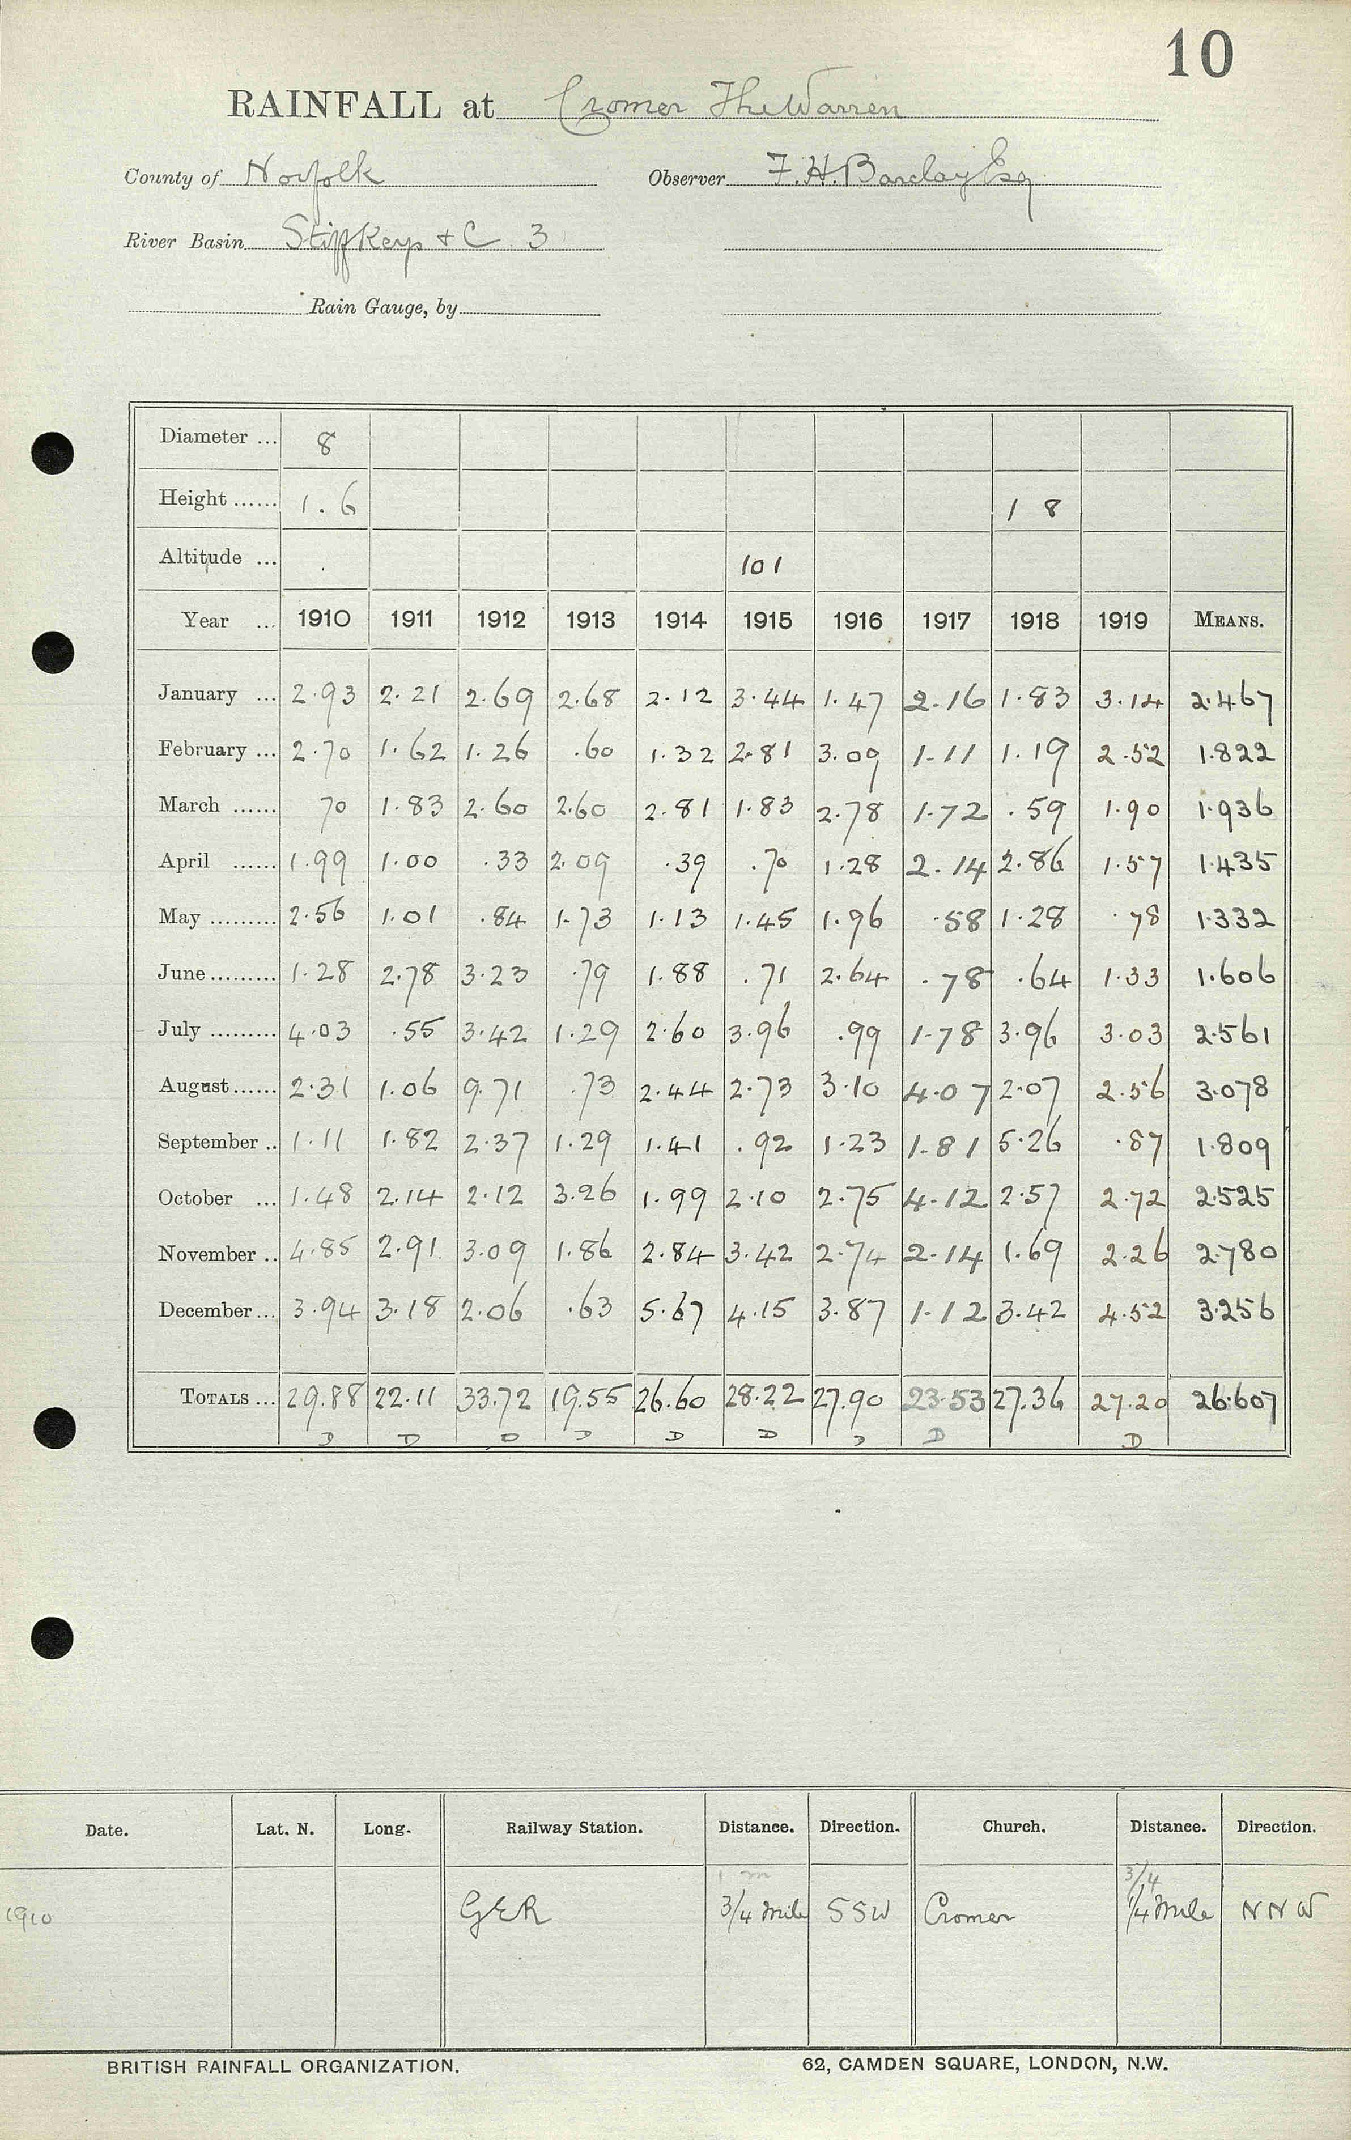 10
RAINFALL at Cromer The Warren
County of Norfolk Observer F. H. Barclay Esq
River Basin Stiffkey + C 3
Rain Gauge, by
Diameter ... 8
Height ...... 1.6 1 8
Altitude ... 101
Year ... 1910 1911 1912 1913 1914 1915 1916 1917 1918 1919 MEANS.
January ... 2.93 2.21 2.69 2.68 2.12 3.44 1.47 2.16 1.83 3.14 2.467
February ... 2.70 1.62 1.26 .60 1.32 2.81 3.09 1.11 1.19 2.52 1.822
March ...... 70 1.83 2.60 2.60 2.81 1.83 2.78 1.72 .59 1.90 1.936
April ...... 1.99 1.00 .33 2.09 .39 .70 1.28 2.14 2.86 1.57 1.435
May ......... 2.56 1.01 .84 1.73 1.13 1.45 1.96 .58 1.28 .78 1.332
June ......... 1.28 2.78 3.23 .79 1.88 .71 2.64 .78 .64 1.33 1.606
July ......... 4.03 .55 3.42 1.29 2.60 3.96 .99 1.78 3.96 3.03 2.561
August ...... 2.31 1.06 9.71 .73 2.44 2.73 3.10 4.07 2.07 2.56 3.078
September .. 1.11 1.82 2.37 1.29 1.41 .92 1.23 1.81 5.26 .87 1.809
October ... 1.48 2.14 2.12 3.26 1.99 2.10 2.75 4.12 2.57 2.72 2.525
November .. 4.85 2.91 3.09 1.86 2.84 3.42 2.74 2.14 1.69 2.26 2.780
December ... 3.94 3.18 2.06 .63 5.67 4.15 3.87 1.12 3.42 4.52 3.256
TOTALS ... 29.88 22.11 33.72 19.55 26.60 28.22 27.90 23.53 27.36 27.20 26.607
D D D D D D D D D
Date. Lat. N. Long. Railway Station. Distance. Direction. Church. Distance. Direction.
1 m 3/4
1910 GER 3/4 mile SSW Cromer 1/4 mile NNW
BRITISH RAINFALL ORGANIZATION. 62, CAMDEN SQUARE, LONDON, N.W.